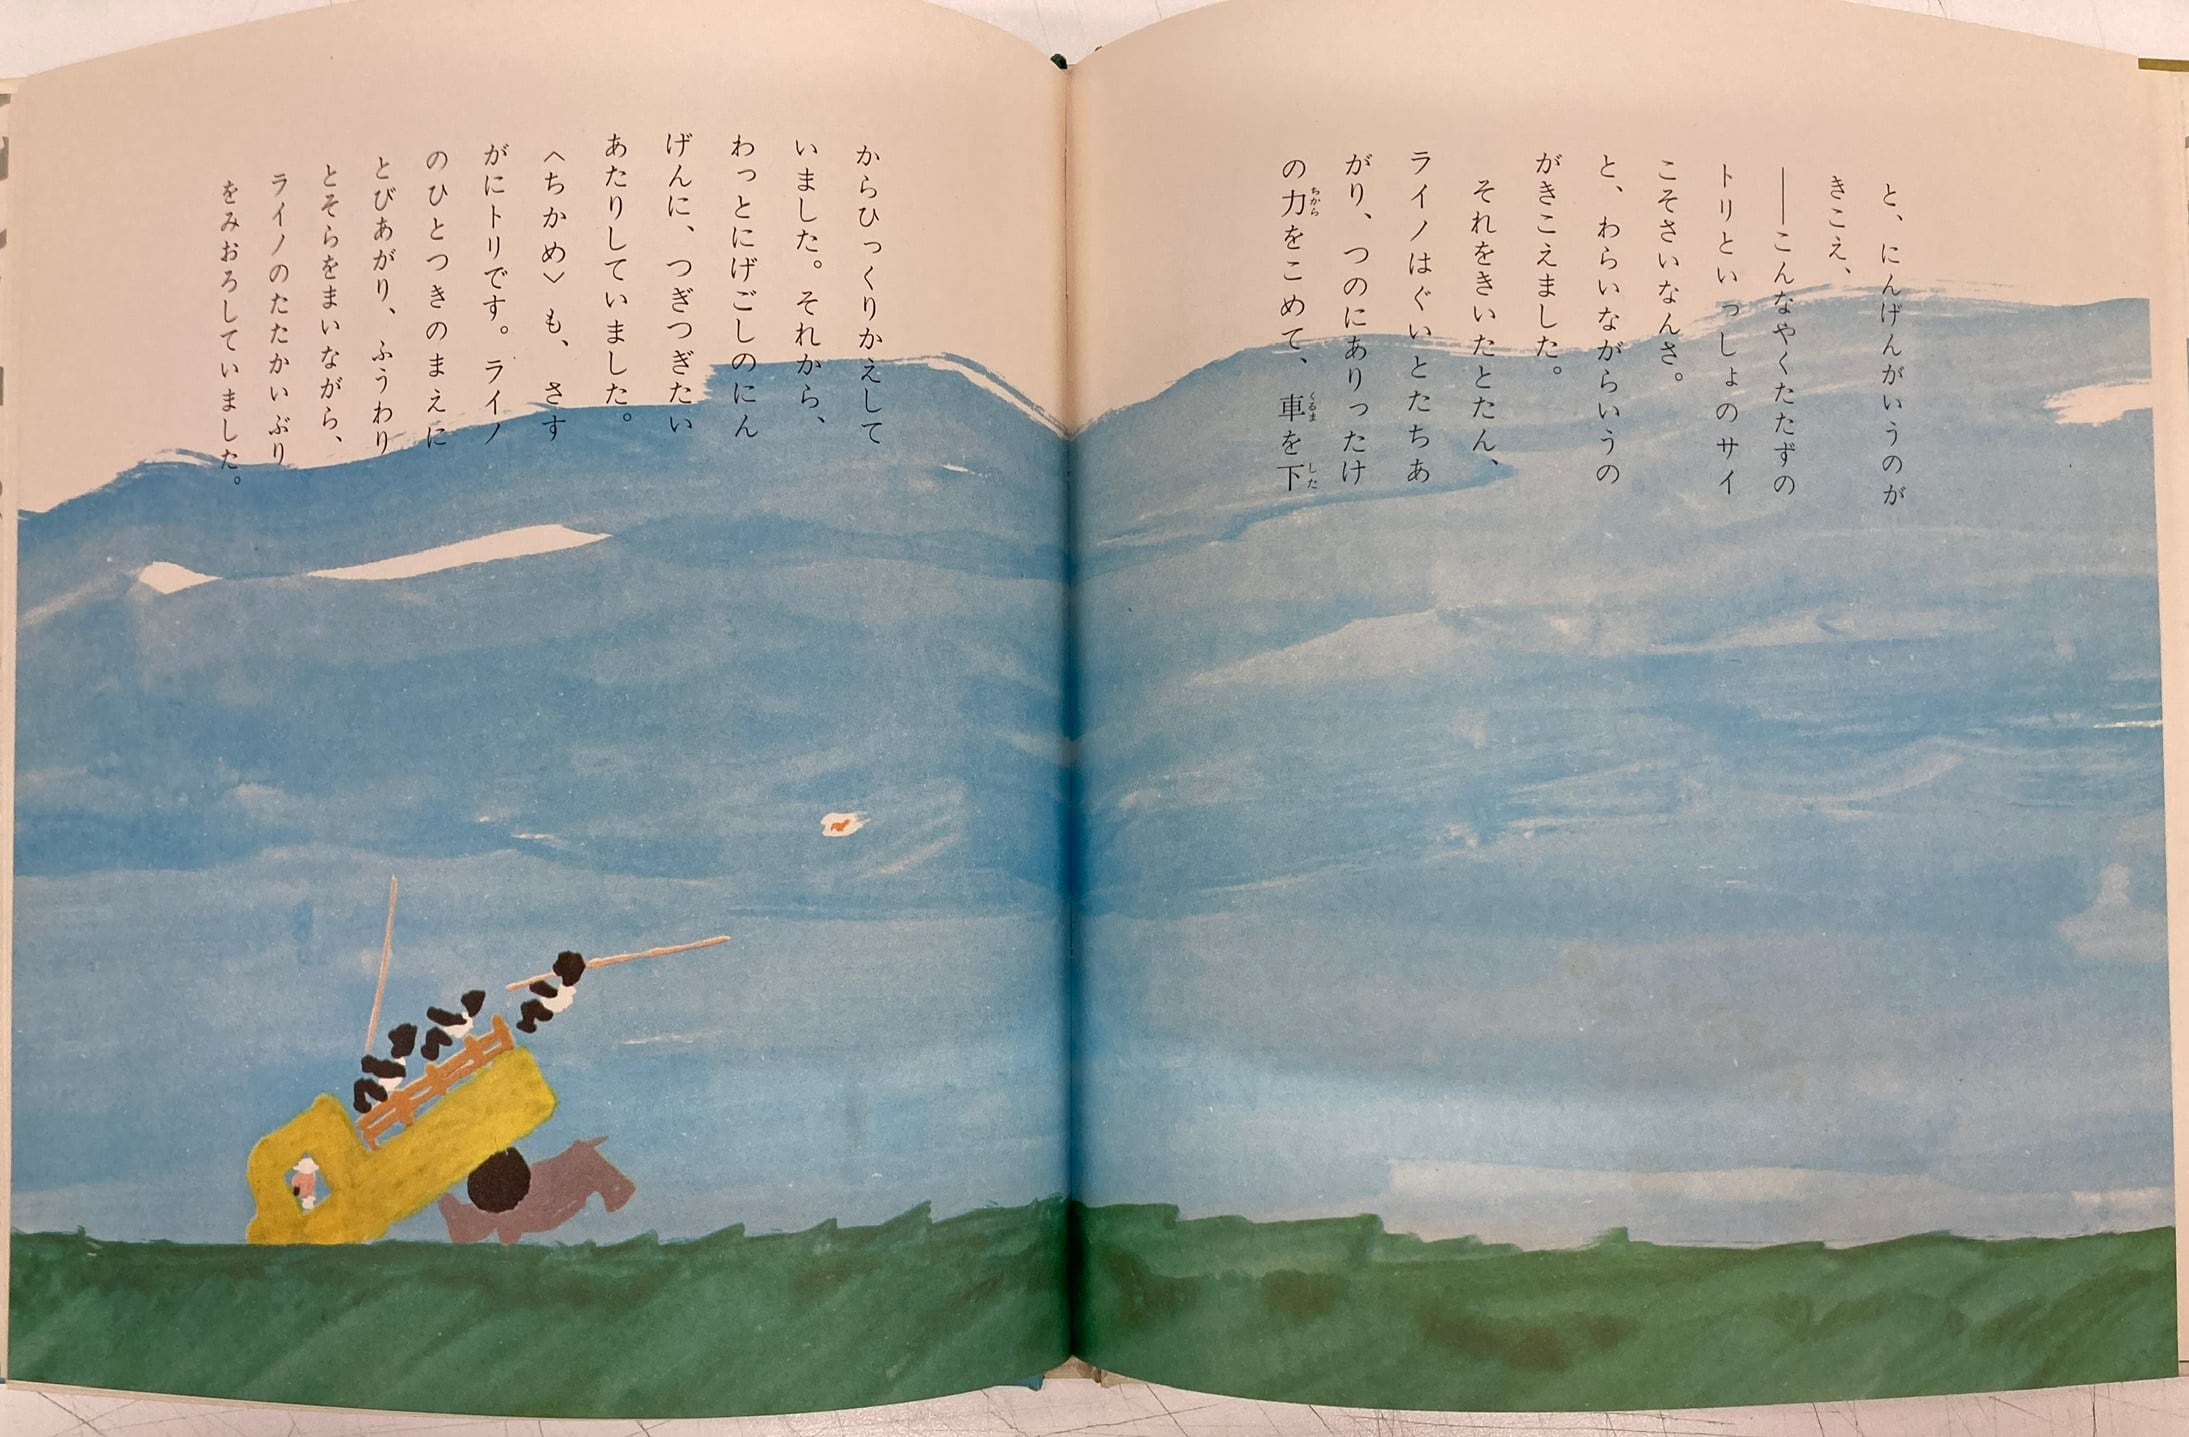 と、にんげんがいうのが
きこえ、
――こんなやくたたずの
トリといっしょのサイ
こそさいなんさ。
と、わらいながらいうの
がきこえました。
それをきいたとたん、
ライノはぐいとたちあ
がり、つのにありったけ
の力をこめて、車を下
ちから
くるま
した
からひっくりかえして
いました。それから、
わっとにげごしのにん
げんに、つぎつぎたい
あたりしていました。
〈ちかめ〉も、さす
がにトリです。ライノ
のひとつきのまえに
とびあがり、ふうわり
とそらをまいながら、
ライノのたたかいぶり
をみおろしていました。